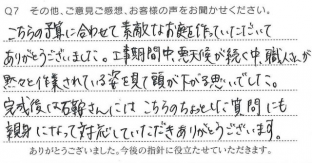 Q7 その他、ご意見ご感想、お客様の声をお聞かせください。
こちらの予算に合わせて素敵なお庭を作っていただいて
ありがとうございました。工事期間中、悪天候が続く中、職人さんが
黙々と作業されている姿を見て頭が下がる思いでした。
完成後には石鞍さんには こちらのちょっとした質問にも
親身になって対応していただきありがとうございます。
ありがとうございました。今後の指針に役立たせていただきます。